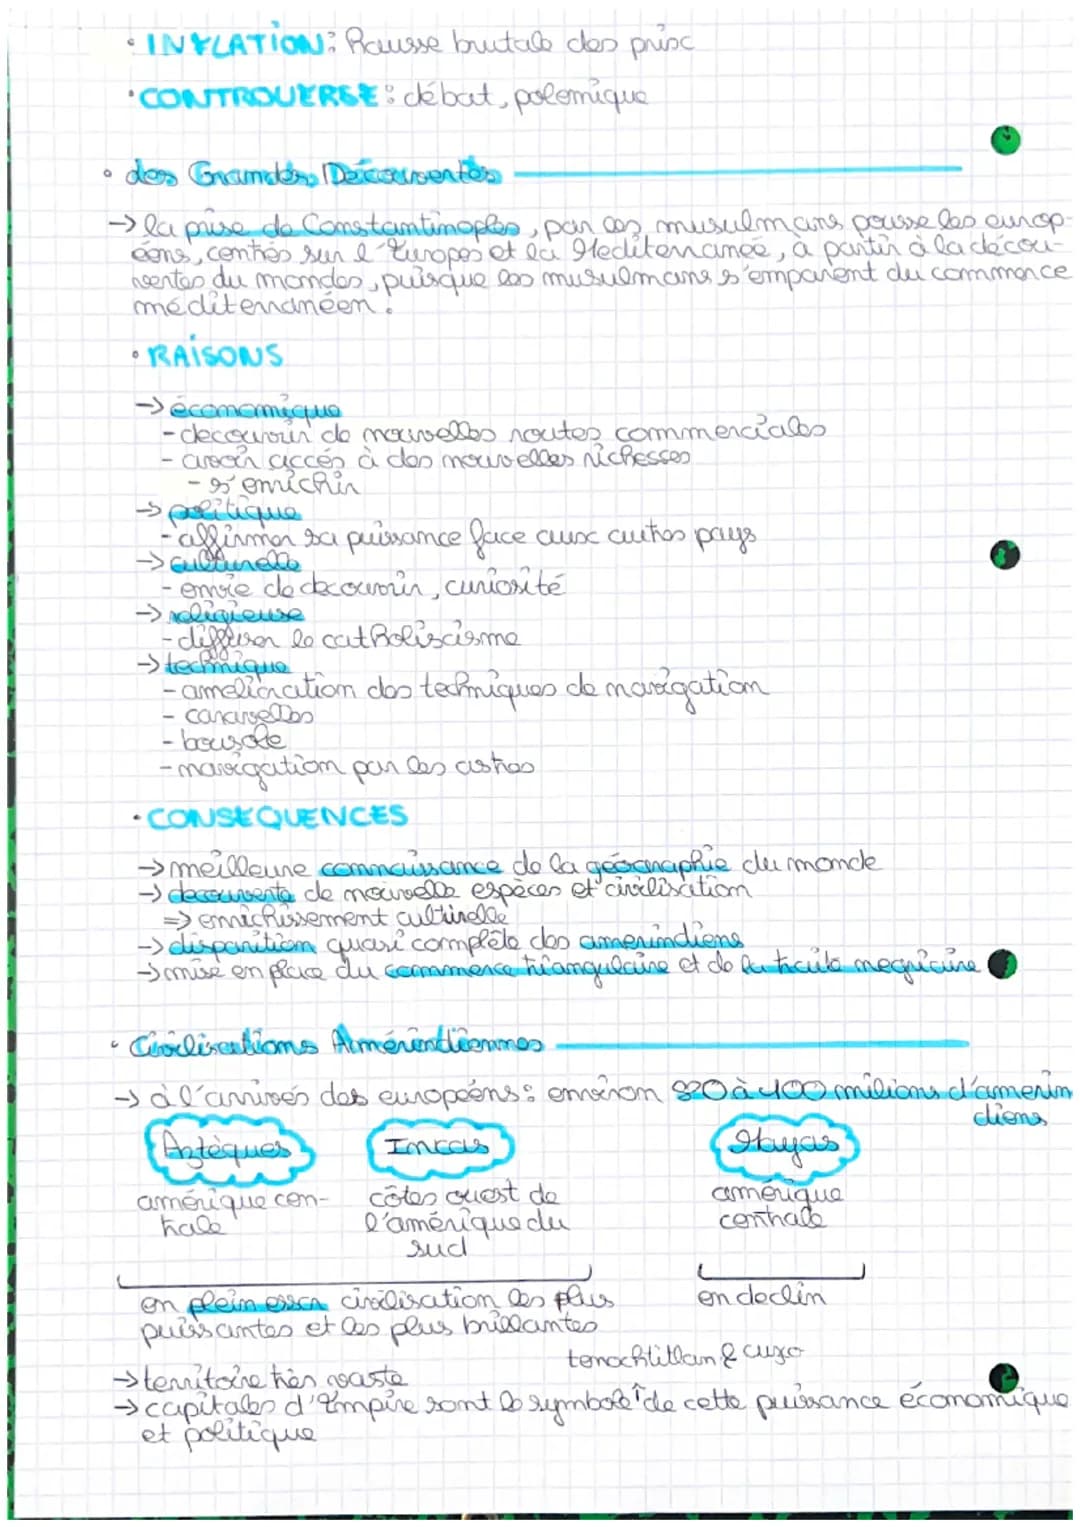 • INFLATION : Hausse brutale des prix
• CONTROVERSE : débat, polémique
• les Grandes Découvertes
→ la prise de Constantinoples, par les musulmans pousse les europ-
éens, centrés sur l'Europes et la Mediterranée, à partir à la décou-
vertes du mondes, puisque les musulmans s'emparent du commerce
méditerranéen.
• RAISONS
→ économique
- decouvrir de nouvelles routes commerciales
- avoir accés à des nouvelles richesses
- s'enrichir
→ politique
- affirmer sa puissance face aux autres pays
→ culturelle
- envie de decouvrir, curiosité
→ religieuse
- diffuser le catholiscisme
→ technique
- amelioration des techniques de navigation
- caravelles
- bousole
- navigation par les astres
• CONSEQUENCES
→ meilleure connaissance de la géographie du monde
→ decouverte de nouvelle espèces et civilisation
⇒ enrichissement culturelle
→ disparition quasi complète des amerindiens
→ mise en place du commerce triangulaire et de la traite negriaire
• Civilisations Amérindiennes
→ à l'arrivés des européens : environ 80 à 100 milions d'amerin
diens
Aztèques Incas Mayas
amérique cen- côtes ouest de amérique
trale l'amérique du centrale
sud
en plein essor civilisation les plus en declin
puissantes et les plus brillantes
tenochtitlan & cuzo
→ territoire très vaste
→ capitales d'Empire sont le symbole de cette puissance économique
et politique